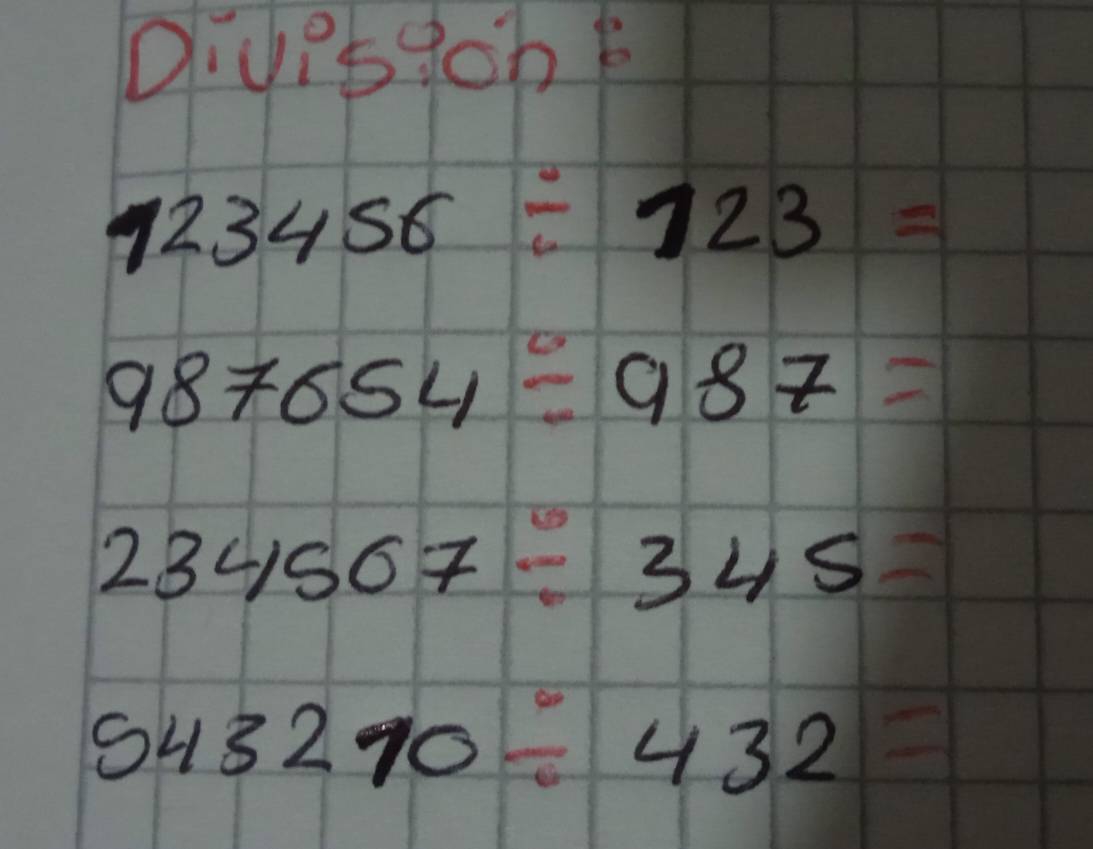 División:
123456 ÷ 123 =
987654 ÷ 987 =
234567 ÷ 345 =
543210 ÷ 432 =